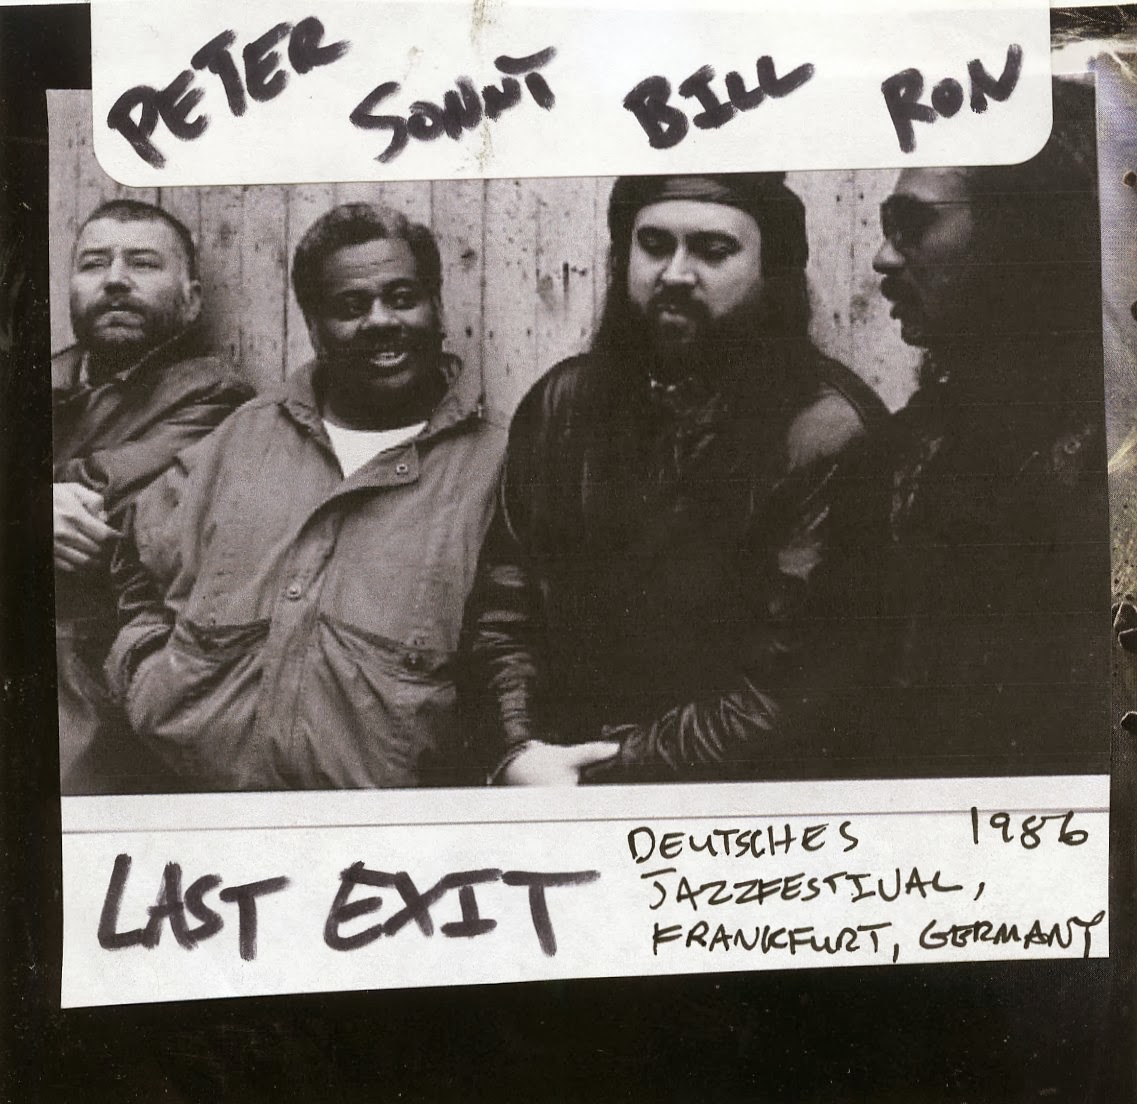 PETER SONNY BILL RON
LAST EXIT
DEUTSCHES 1986
JAZZFESTIVAL,
FRANKFURT, GERMANY